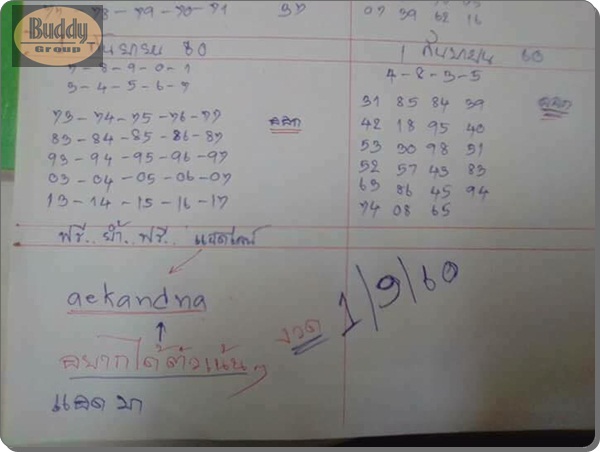 Buddy
Group
75 - 78 - 79 - 70 - 71
37
07 39 62 16
กันยายน 60
1 กันยายน 60
7 - 8 - 9 - 0 - 1
4 - 8 - 3 - 5
3 - 4 - 5 - 6 - 7
73 - 74 - 75 - 76 - 77
31 85 84 39
83 - 84 - 85 - 86 - 87
42 18 95 40
93 - 94 - 95 - 96 - 97
53 30 98 51
03 - 04 - 05 - 06 - 07
52 57 43 83
13 - 14 - 15 - 16 - 17
63 86 45 94
74 08 65
ฟรี.. ย้ำ.. ฟรี.. แอดไลน์
aekandna
งวด 1/9/60
อยากได้ตัวเน้นๆ
แอดมา